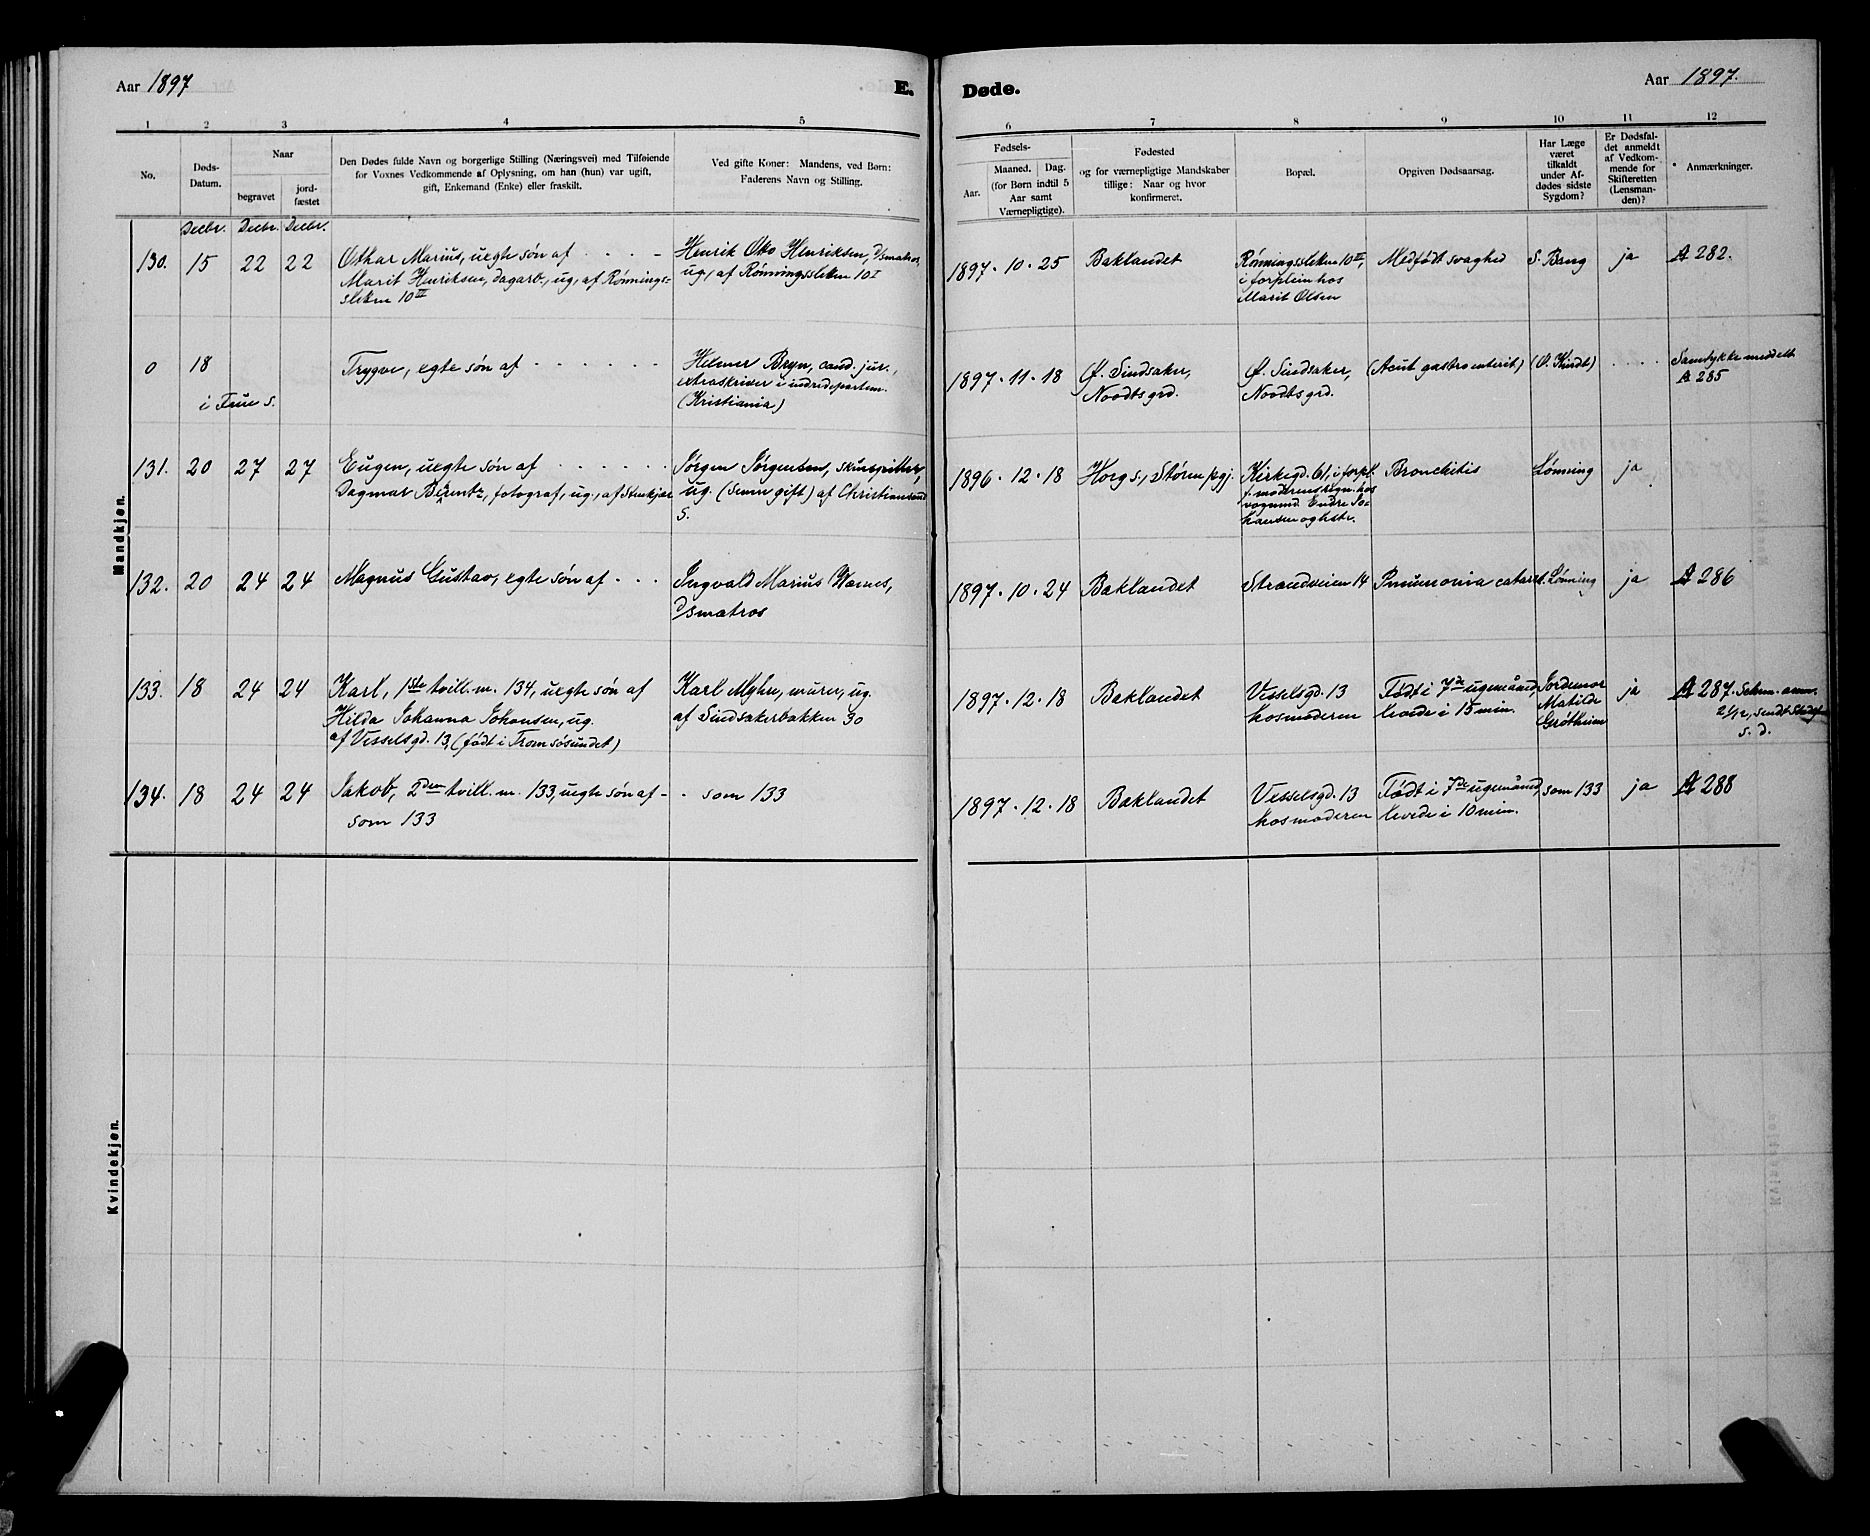 Aar 1897
E.
1 2 3 4 5
No.
Døds-
Datum.
Naar
begravet
jord-
fæstet
Den Dødes fulde Navn og borgerlige Stilling (Næringsvei) med Tilføiende
for Voxnes Vedkommende af Oplysning, om han (hun) var ugift,
gift, Enkemand (Enke) eller fraskilt.
Ved gifte Koner: Mandens, ved Børn:
Faderens Navn og Stilling.
Mandkjøn.
Decbr. Decbr. Decbr.
130. 15 22 22 Othar Marius, uegte søn af . . . . - Henrik Otto Henriksen, d/smatros,
Marit Henriksen, dagarb., ug., af Rønnings= ug., af Rønningssletten 10 I
sletten 10 II
0 18 Trygve, egte søn af - - - - - - Hilmar Bryn, cand. jur.,
extraskriver i indredepartem.
i Frue s. (Kristiania)
131. 20 27 27 Eugen, uegte søn af . . . . . . Jørgen Jørgensen,
Dagmar Berentz, fotograf, ug., af Stenkjær ug. (senere gift) af Christianssand
S.
132. 20 24 24 Magnus Gustav, egte søn af - - - Ingvald Marius
d/smatros
133. 18 24 24 Karl, 1ste tvill. m. 134, uegte søn af Karl Myhre, murer, ug.
Hilda Johanna Johansen, ug. af Sindsakerbakken 30
af Vesselsgd. 13, (født i Tromsøsundet)
134. 18 24 24 Jakob, 2den tvill. m. 133, uegte søn af - - som 133
som 133
Kvindekjøn.
Døde.
Aar 1897.
6 7 8 9 10 11 12
Fødsels-
Aar.
Maaned. Dag.
(for Børn indtil 5
Aar samt
Værnepligtige).
Fødested
og for værnepligtige Mandskaber
tillige: Naar og hvor
konfirmeret.
Bopæl.
Opgiven Dødsaarsag.
Har Læge
været
tilkaldt
under Af-
dødes sidste
Sygdom?
Er Dødsfal-
det anmeldt
af Vedkom-
mende for
Skifteretten
(Lensman-
den)?
Anmærkninger.
1897. 10. 25 Baklandet Rønningssletten 10 II, Medfødt svaghed S. Bang ja A 282.
i forplein hos
Marit Olsen
1897. 11. 18 Ø. Sindsaker, Ø. Sindsaker, (Acut gastroenterit) (O. Kindt) . . . . Samtykke meddelt
Noodtsgrd. Noodtsgrd. A 285
1896. 12. 18 Horg s., Støren pgj. Kirkegd. 61, i forpl. Bronchitis Lønning ja
f. moderens regn. hos
vognmd. Endre Jo-
hansen og hstr.
1897. 10. 24 Baklandet Strandveien 14 Pneumonia catarrh. Lønning ja A 286
1897. 12. 18 Baklandet Vesselsgd. 13 Født i 7de ugemånd, Jordemor ja A 287.
hos moderen levede i 15 min. Matilde
Grøtheim s. d.
1897. 12. 18 Baklandet Vesselsgd. 13 Født i 7de ugemånd, som 133 ja A 288
hos moderen levede i 10 min.